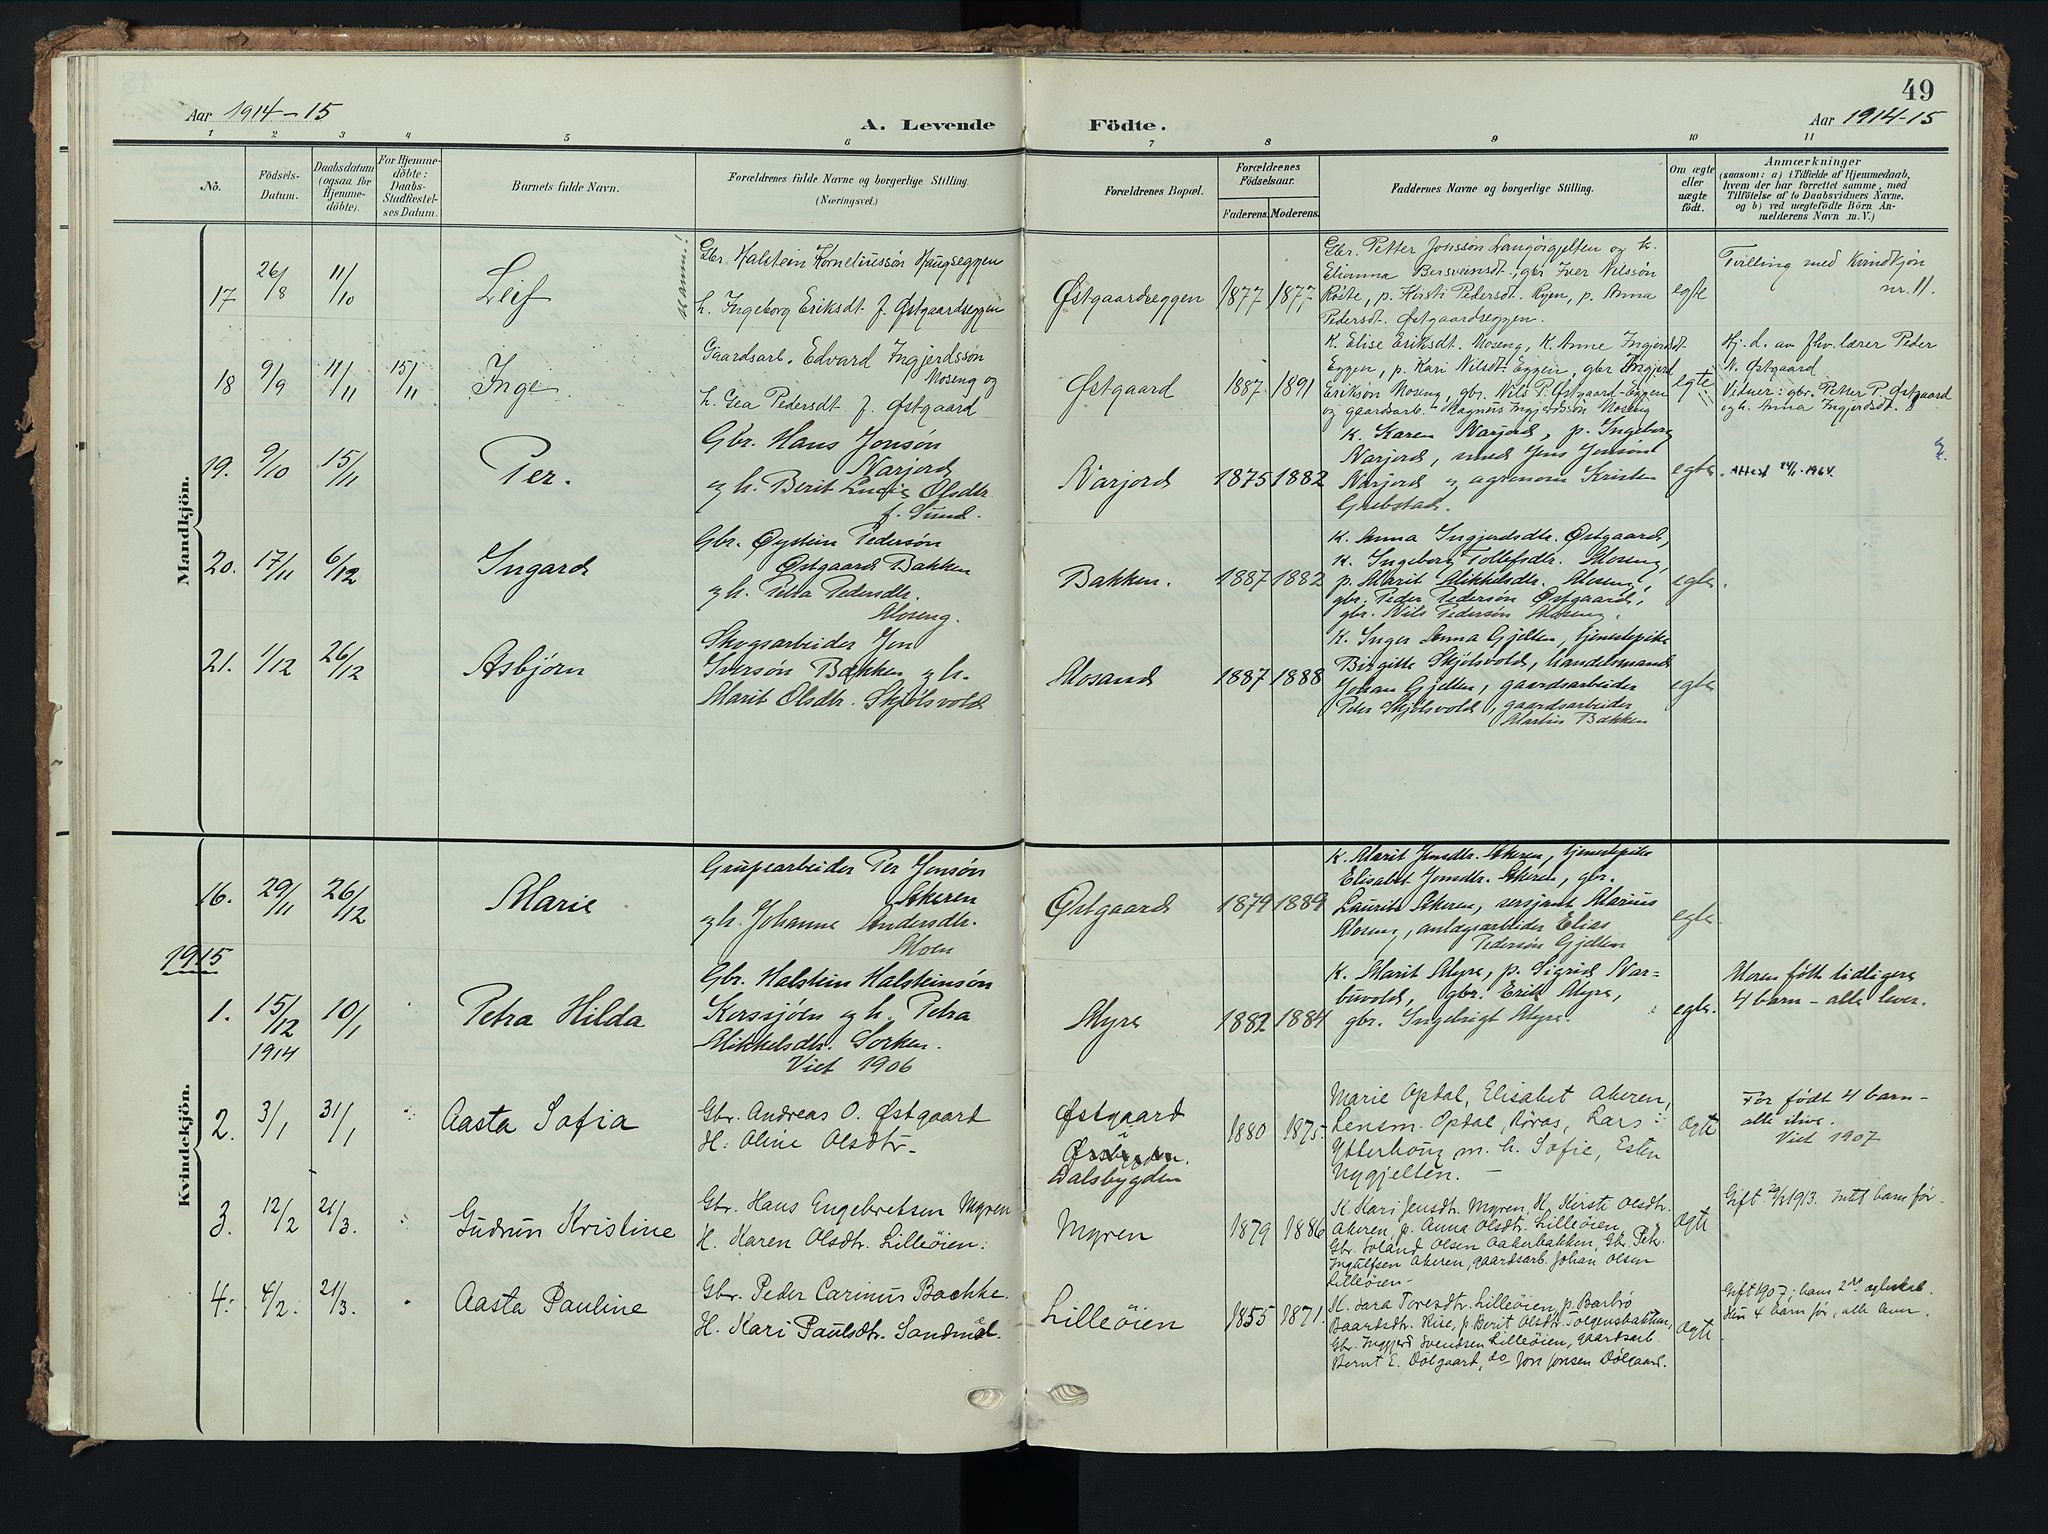 49
Aar 1914-15
A. Levende Födte.
Aar 1914-15
1 2 3 4 5 6 7 8 9 10 11
No.
Födsels-
Datum.
Daabsdatum
(ogsaa for
Hjemme-
döbte).
For Hjemme-
döbte:
Daabs-
Stadfæstel-
ses Datum.
Barnets fulde Navn.
Forældrenes fulde Navne og borgerlige Stilling.
(Næringsvei.)
Forældrenes Bopæl.
Forældrenes
Födselsaar.
Faderens. Moderens.
Faddernes Navne og borgerlige Stilling.
Om ægte
eller
uægte
födt.
Anmærkninger
(saasom: a) i Tilfælde af Hjemmedaab,
hvem der har forrettet samme, med
Tilföielse af to Daabsvidners Navne,
og b) ved uægtefödte Börn An-
melderens Navn m. V.)
Mandkjön.
17
26/8
11/10
Leif
Gbr. Halstein Korneliussön Haugseggen
h. Ingeborg Eriksdt. f. Østgaardseggen
Østgaardseggen
1877
1877
Gbr. Petter Jonssön Langöigjelten og k.
Elionna Bersveinsdt., gbr Iver Nilssön
Röste, p. Kirsti Pedersdt. Ryen, p. Anna
Pedersdt. Østgaardseggen.
egte
Tvilling med Kvindkjön
nr. 11.
18
9/9
11/11
15/11
Inge
Gaardsarb. Edvard Ingjerdssön
Moseng og
h. Gea Pedersdt. f. Østgaard
Østgaard
1887
1891
K. Elise Eriksdt. Moseng, K. Anne Ingjerdsdt.
Eggen, p. Kari Nilsdt. Eggen, gbr Ingjerd
Eriksön Moseng, gbr. Nils P. Østgaard-Eggen
og gaardsarb. Magnus Ingjerdssön Moseng
egte
Hj. d. av fhv. lærer Peder
N. Østgaard
Vidner: gbr. Petter P. Østgaard
og h. Anna Ingjerdsdt.
19.
9/10
15/11
Per.
Gbr. Hans Jonsön
Narjord
og h. Berit Lucie Olsdtr.
f. Sund.
Narjord
1875
1882
K. Karen Narjord, p. Ingeborg
Narjord, smed Jens Jensön
Narjord og agronom Kristen
Grebstad.
egte.
Attest 24/1-1964.
20.
17/11
6/12
Ingard
Gbr. Øystein Pedersön
Østgaard Bakken
og h. Petra Pedersdtr.
Moseng.
Bakken.
1887
1882
K. Anna Ingjerdsdtr. Østgaard,
K. Ingeborg Tollefsdtr. Moseng,
p. Marit Mikkelsdtr. Moseng,
gbr. Peder Pedersön Østgaard,
gbr. Nils Pedersön Moseng.
egte.
21.
1/12
26/12
Asbjörn
Skogsarbeider Jon
Iversön Bakken og h.
Marit Olsdtr. Skjölsvold
Mosand
1887
1888
K. Inger Anna Gjelten, tjenestepike
Birgitte Skjölsvold, handelsmand
Johan Gjelten, gaardsarbeider
Peter Skjölsvold, gaardsarbeider
Martin Bakken
egte
Kvindekjön.
16.
29/11
26/12
Marie
Grupearbeider Per Jonsön
Akeren
og h. Johanne Andersdtr.
Moen
Østgaard
1879
1889
K. Marit Jonsdtr. Akeren, tjenestepike
Elisabet Jonsdtr. Akeren, gbr.
Laurits Akeren, sersjant Marius
Moseng, anlægsarbeider Elias
Pedersön Gjelten
egte.
1915
1.
15/12
1914
10/1
Petra Hilda
Gbr. Halstein Halsteinsön
Korssjöen og h. Petra
Mikkelsdtr. Sorken.
Viet 1906
Myre
1882
1884
K. Marit Myre, p. Sigrid Nar-
buvold, gbr. Erik Myre,
gbr. Ingebrigt Myre.
egte.
Moren födt tidligere
4 barn - alle lever.
2.
3/1
31/1
Aasta Sofia
Gbr. Andreas O. Østgaard
H. Oline Olsdtr.
Østgaard
i
Dalsbygden
1880
1875
Marie Opdal, Elisabet Akeren,
Lensm. Opdal, Röros, Lars
Ytterhoug m. h. Sofie, Esten
Nygjelten.
ægte
Før födt 4 barn-
alle ilive.
Viet 1907
3.
12/2
21/3.
Gudrun Kristine
Gbr. Hans Engebretsen Myren
H. Karen Olsdtr. Lilleöien.
Myren
1879
1886
K. Kari Jensdtr. Myren, H. Kirste Olsdtr.
Akeren, p. Anna Olsdtr. Lilleöien,
Gbr. Toland Olsen Aakerbakken, Gbr. Petr.
Ingulfsen Akeren, gaardsarb. Johan Olsen
Lilleöien-
ægte
Gift 1913. Intet barn før.
4.
4/2.
21/3.
Aasta Pauline
Gbr. Peder Carinus Bachke.
H. Kari Paulsdtr. Sandmæl.
Lilleöien
1855
1871.
K. Sara Toresdtr. Lilleöien, p. Barbrö
Baardsdtr. Hise, p. Berit Olsdtr. Tolgensbakken,
Gbr. Ingjerd Svendsen Lilleöien, gaardsarb.
Bernt E. Dölgaard, do Jon Jonsen Dölgaard.
ægte
Gift 1907; hans 2det egteskab.
Hun 4 barn før, alle lever.